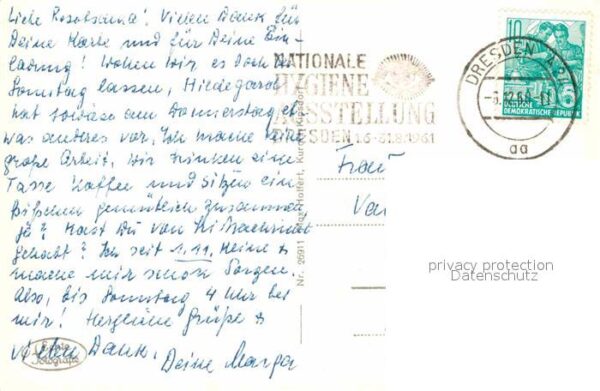 Liebe Rosalinda! Vielen Dank für
Deine Karte und für Deine Ein-
ladung! Wollen wir es doch bei
Sonntag lassen, Hildegard
hat sowieso am Donnerstag et
was anderes vor. Ich mache keine
große Arbeit. Wir trinken eine
Tasse Kaffee und sitzen ein
Bißchen gemütlich zusammen
ja? Hast Du von
gehabt? Ich seit 1.11. keine &
mache mir schon Sorgen.
Also, bis Sonntag 4 Uhr bei
mir! Herzliche Grüße &
vielen Dank,
Deine Marga
NATIONALE
HYGIENE
AUSSTELLUNG
DRESDEN 1.6.-31.8.1961
DRESDEN A
aa
10
5
DEUTSCHE
DEMOKRATISCHE REPUBLIK
Frau
Nr. 26911
Echte
Fotografie
privacy protection
Datenschutz